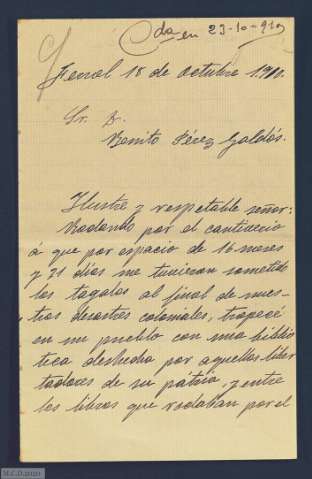 Cda en 23-10-910
Ferrol 18 de Octubre 1,910.
Sr. D.
Benito Pérez Galdós.
Ilustre y respetable señor:
Rodando por el cautiverio
á que por espacio de 16 meses
y 21 días me tuvieron sometido
los tagalos al final de nues-
tros desastres coloniales, tropecé
en un pueblo con una biblio
teca deshecha por aquellos liber
tadores de su pátria, y entre
los libros que rodaban por el